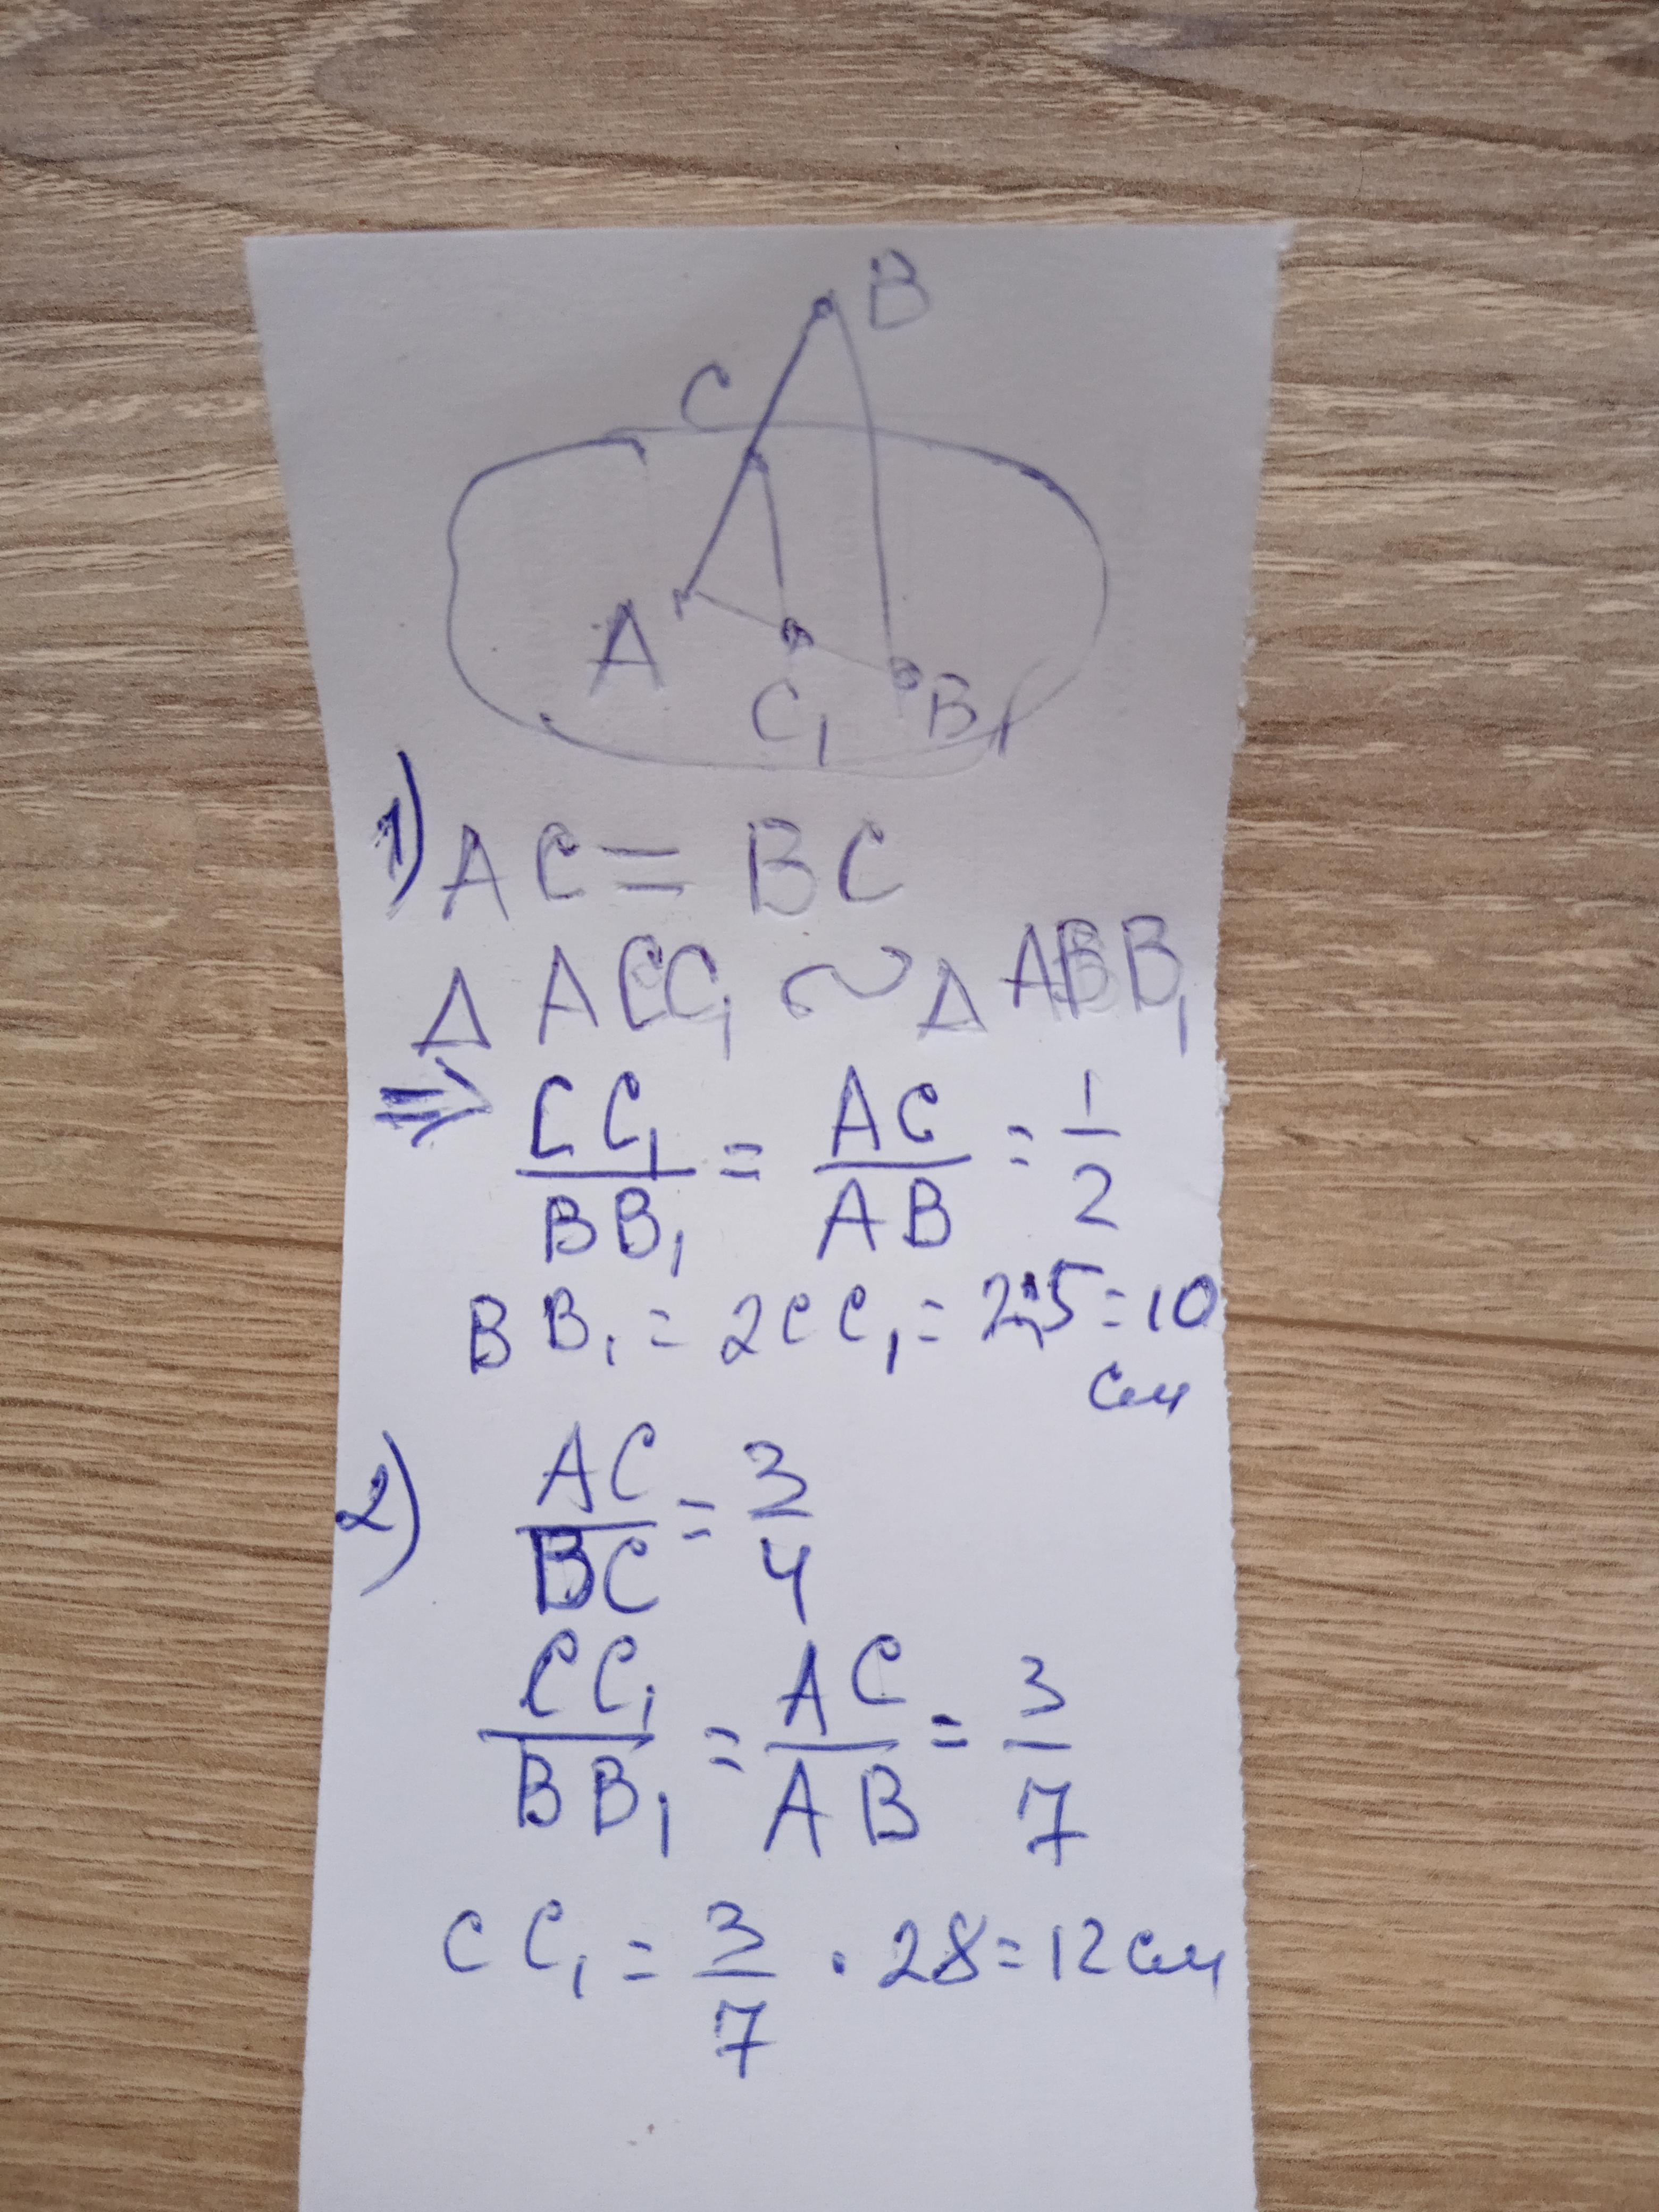 B
C
A
C₁
B₁
1) AC = BC
Δ ACC₁ ~ Δ ABB₁
⇒ CC₁/BB₁ = AC/AB = 1/2
BB₁ = 2CC₁ = 2·5 = 10
см
2) AC/BC = 3/4
CC₁/BB₁ = AC/AB = 3/7
CC₁ = 3/7 · 28 = 12 см